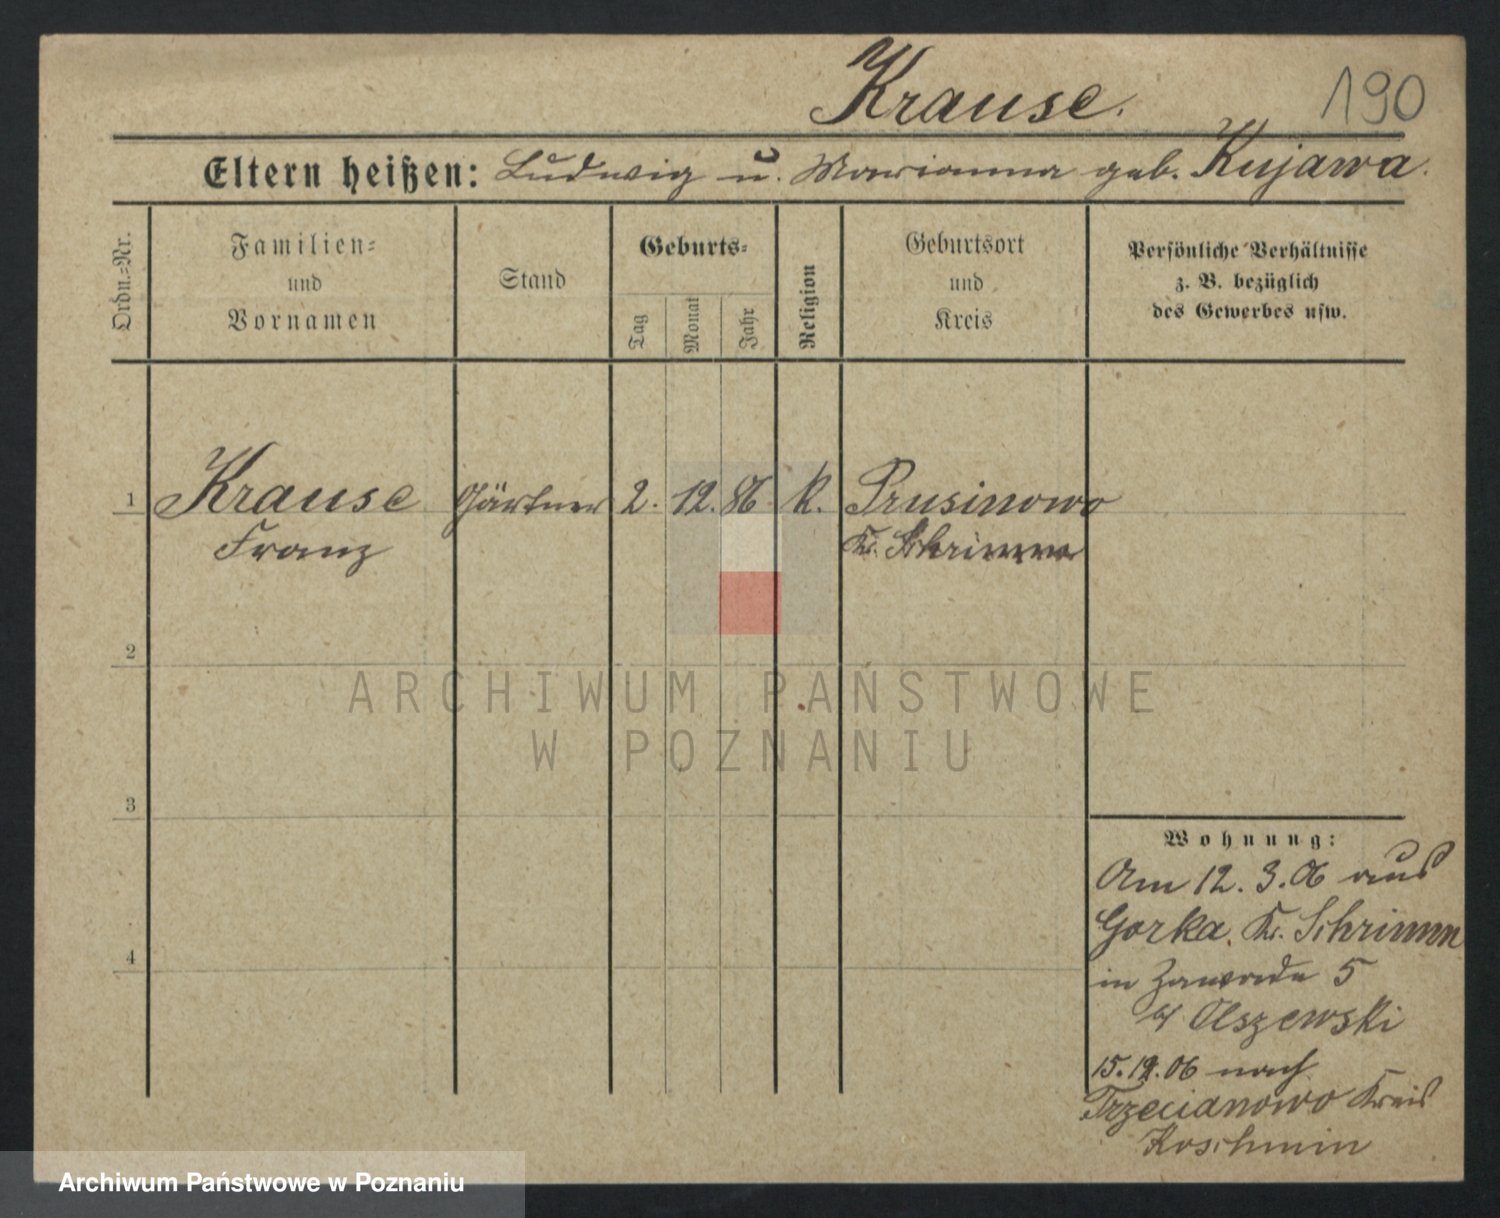 Krause. 190
Eltern heißen: Ludwig u. Marianna geb. Kujawa.
Ordn.=Nr.
Familien=
und
Vornamen
Stand
Geburts=
Tag
Monat
Jahr
Religion
Geburtsort
und
Kreis
Persönliche Verhältnisse
z. B. bezüglich
des Gewerbes usw.
1 Krause Gärtner 2. 12. 86 k. Prusinowo
Franz Kr. Schrimm
2
ARCHIWUM PAŃSTWOWE
W POZNANIU
3
Wohnung:
Am 12. 3. 06 aus
Gorka, Kr. Schrimm
4
in Zawade 5
b/ Olszewski
15. 12. 06 nach
Trzecianowo Kreis
Koschmin
Archiwum Państwowe w Poznaniu